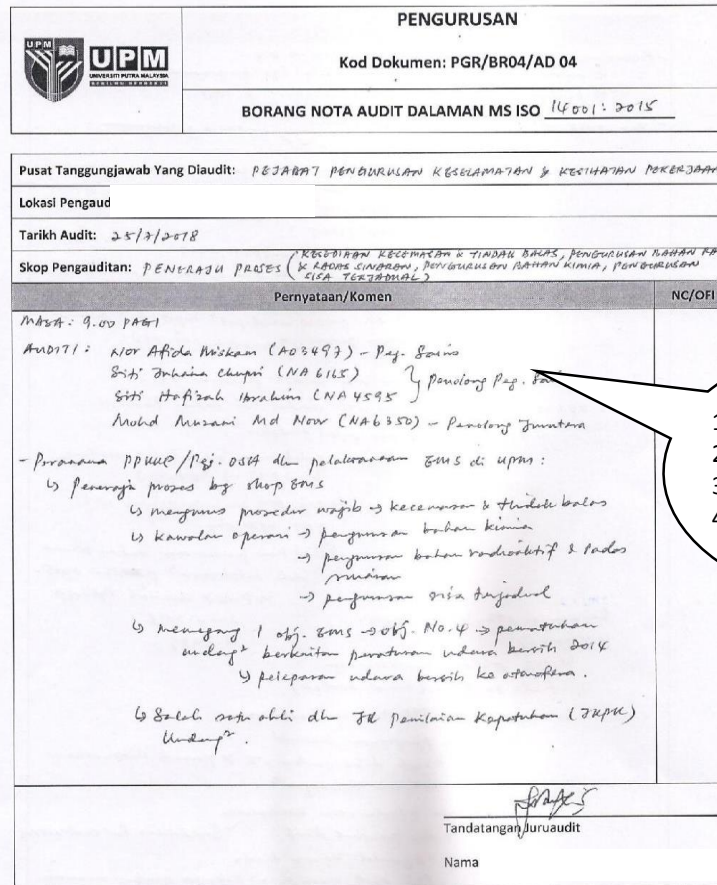 UPM
UPM
UNIVERSITI PUTRA MALAYSIA
BERILMU BERBAKTI
PENGURUSAN
Kod Dokumen: PGR/BR04/AD 04
BORANG NOTA AUDIT DALAMAN MS ISO 14001:2015
Pusat Tanggungjawab Yang Diaudit: PEJABAT PENGURUSAN KESELAMATAN & KESIHATAN PEKERJAAN
Lokasi Pengaud
Tarikh Audit: 25/7/2018
Skop Pengauditan: PENERAJU PROSES (KESEDIAAN KECEMASAN & TINDAK BALAS, PENGURUSAN BAHAN RA
& RADAS SINARAN, PENGURUSAN BAHAN KIMIA, PENGURUSAN
SISA TERJADUAL)
Pernyataan/Komen NC/OFI
MASA: 9.00 PAGI
AUDITI: Nor Afida Miskam (A03497) - Peg. Sains
Siti (NA6165)
Siti Hafizah Ibrahim (NA4595 } Penolong Peg. Sai
Mohd Md Noor (NA6350) - Penolong Jurutera
- Peranan PPKKP/Pej. OSHA dlm pelaksanaan EMS di UPM:
↳ Peneraju proses bg skop EMS
↳ mengurus prosedur wajib → kecemasan & tindak balas
↳ kawalan operasi → pengurusan bahan kimia
→ pengurusan bahan radioaktif & radas
sinaran
→ pengurusan sisa terjadual
↳ memegang 1 obj. EMS → obj. No. 4 → pematuhan
undang² berkaitan peraturan udara bersih 2014
↳ pelepasan udara bersih ke atmosfera.
↳ Salah satu ahli dlm JK Penilaian Kepatuhan (JKPK)
Undang².
1
2
3
4
Tandatangan Juruaudit
Nama